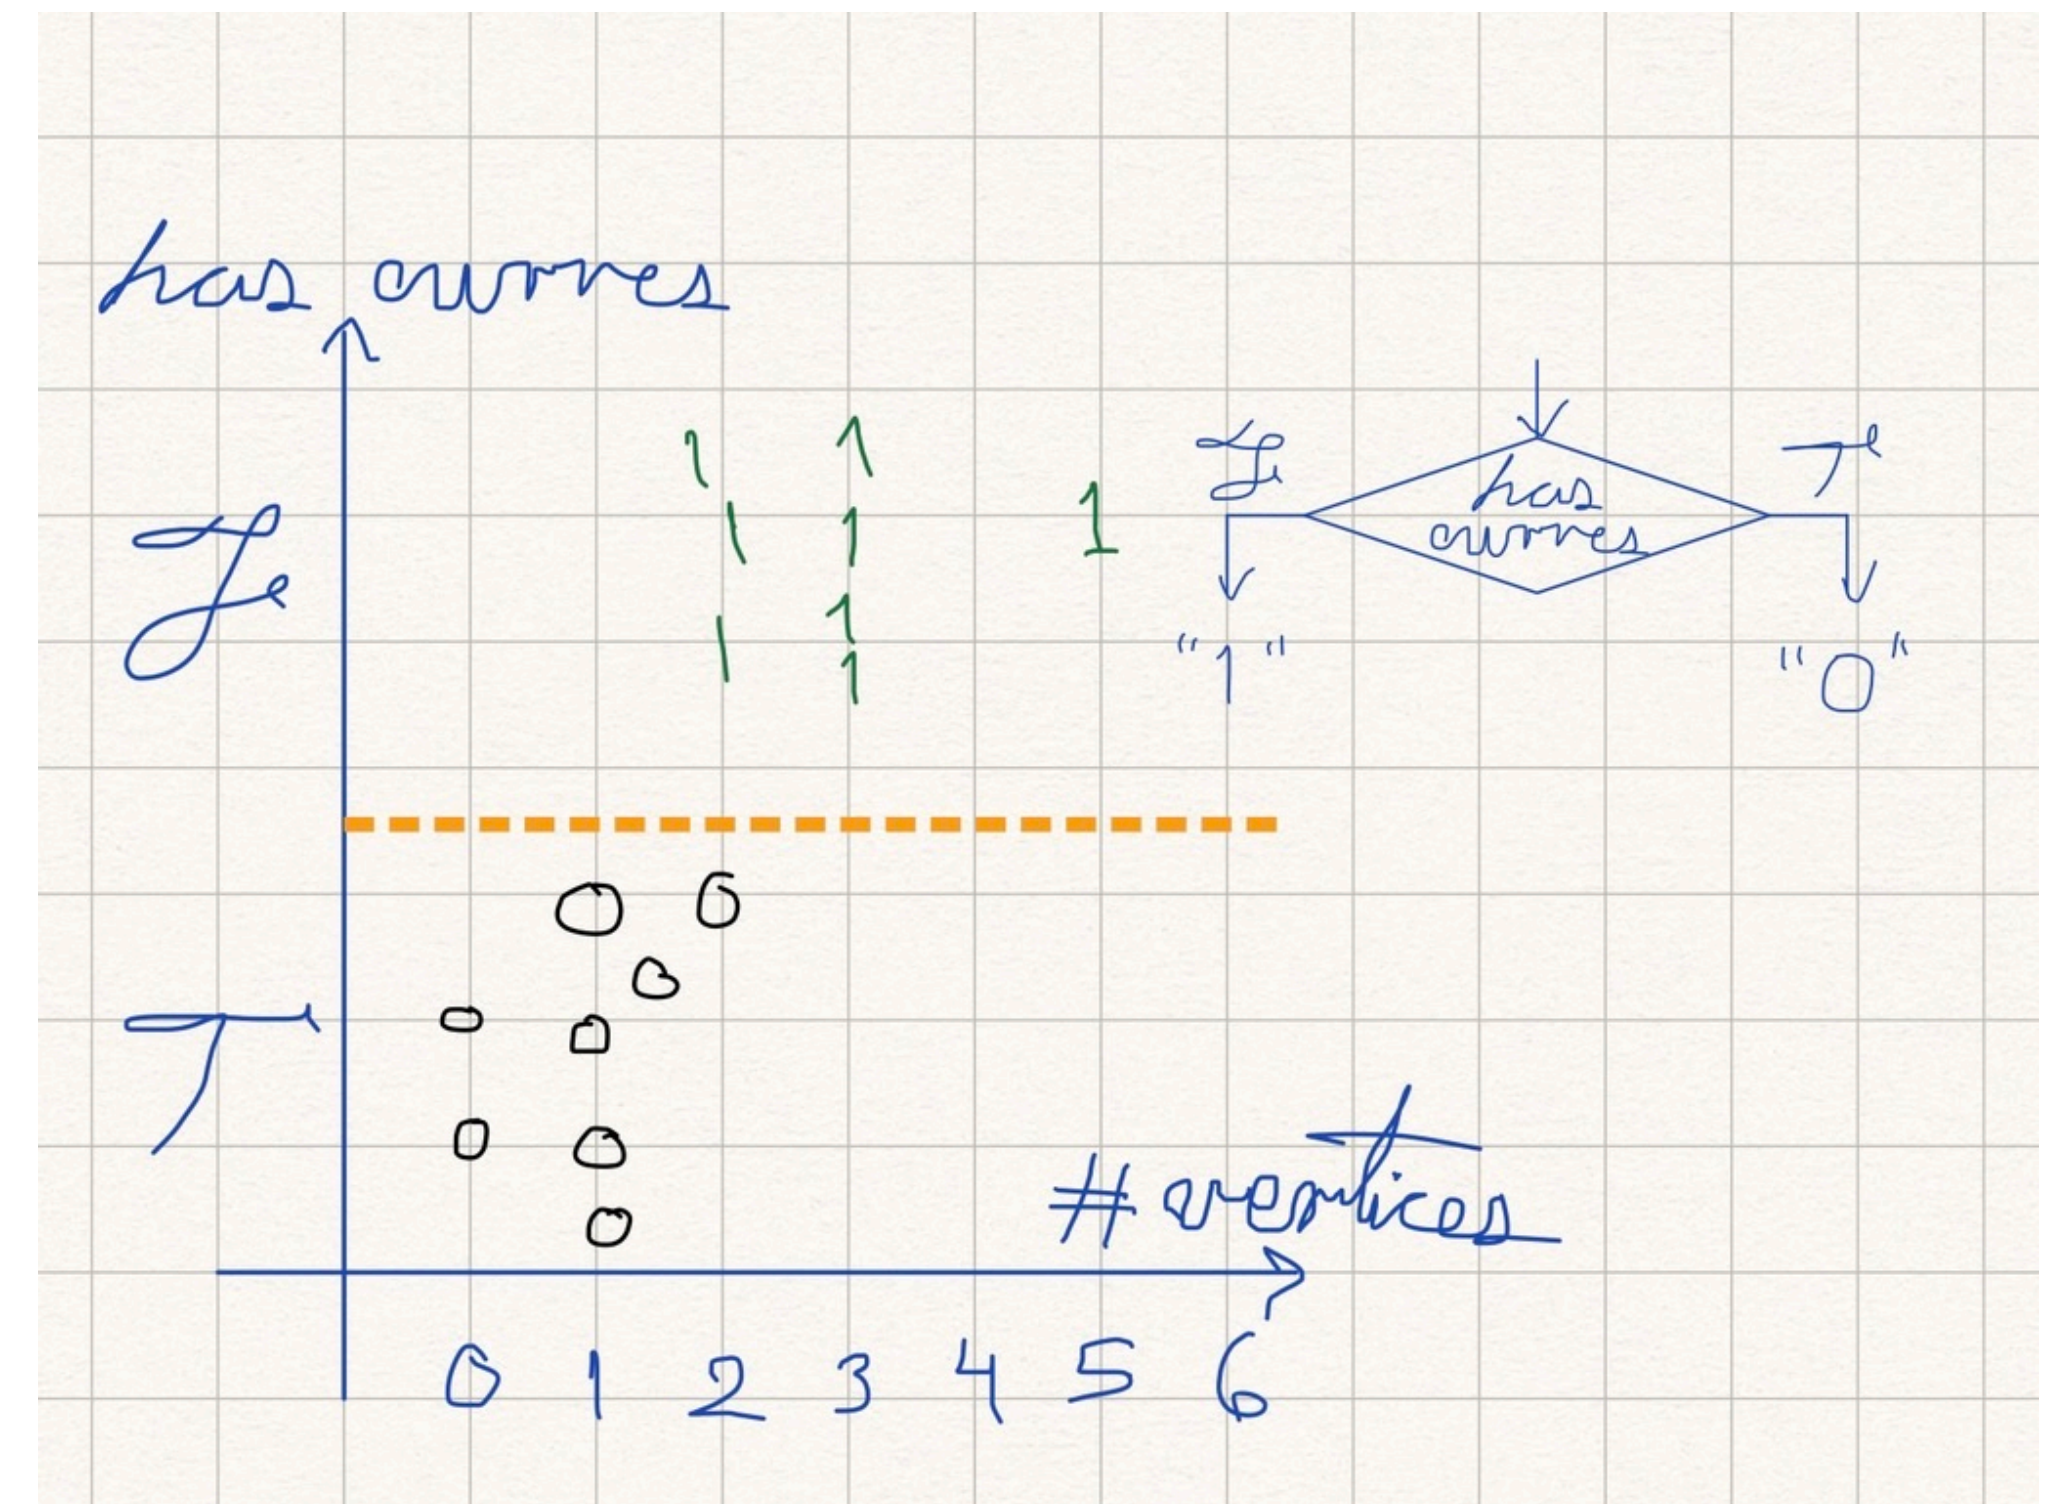 has curves
F
T
1 1
1 1 1
1 1
1
0 0
0
0 0
0 0
0
# vertices
0 1 2 3 4 5 6
has
curves
F T
"1" "0"